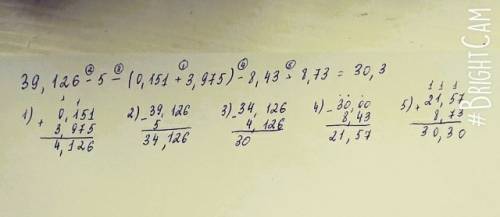 ② ③ ① ④ ⑤
39,126 - 5 - (0,151 + 3,975) - 8,43 + 8,73 = 30,3
1) + 0,151
3,975
4,126
2) - 39,126
5
34,126
3) - 34,126
4,126
30
4) - 30,00
8,43
21,57
1 1 1
5) + 21,57
8,73
30,30
#BRIGHTCAM